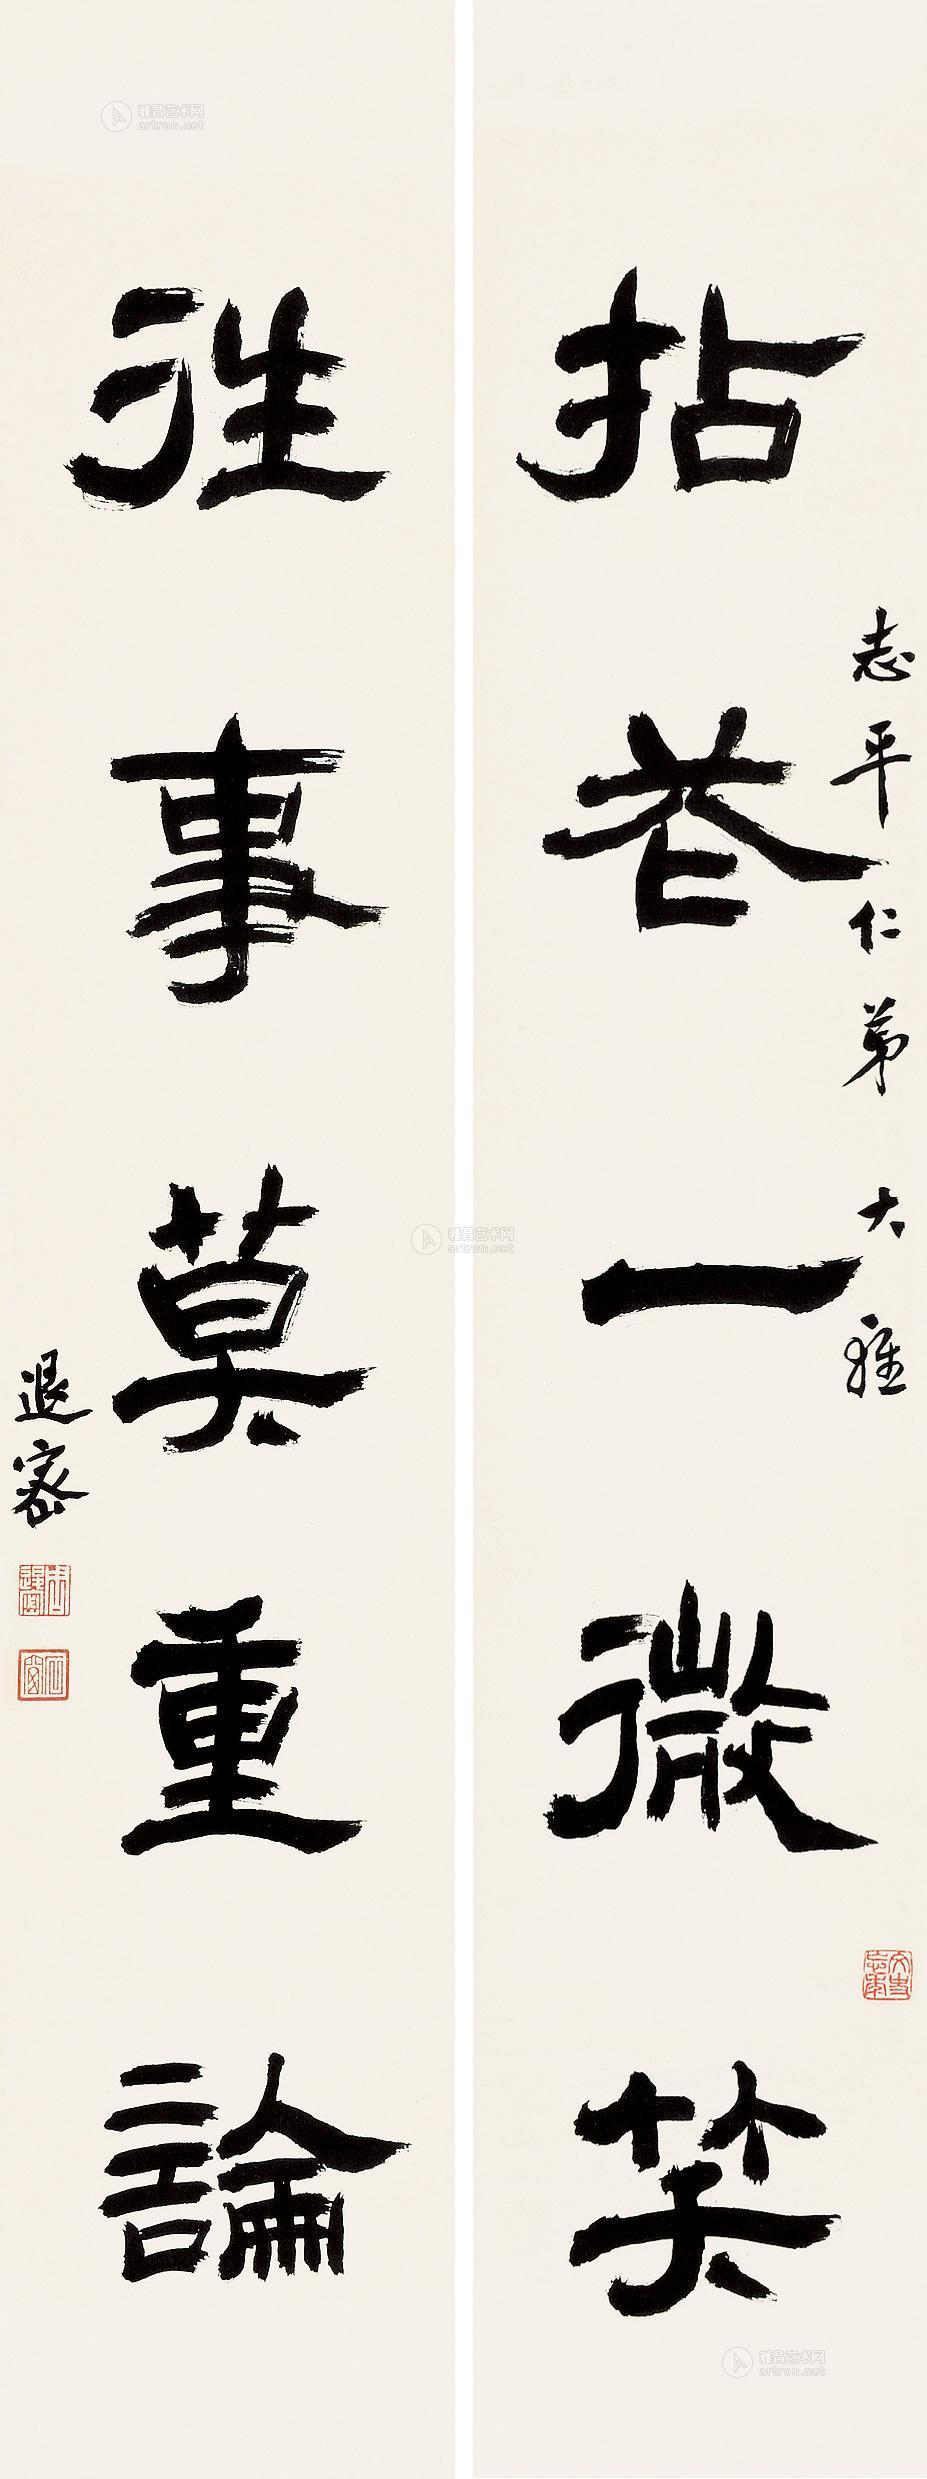 拈花一微笑
志平仁弟 大雅
往事莫重論
退密
雅昌艺术网
artron.net
雅昌艺术网
artron.net
雅昌艺术网
artron.net